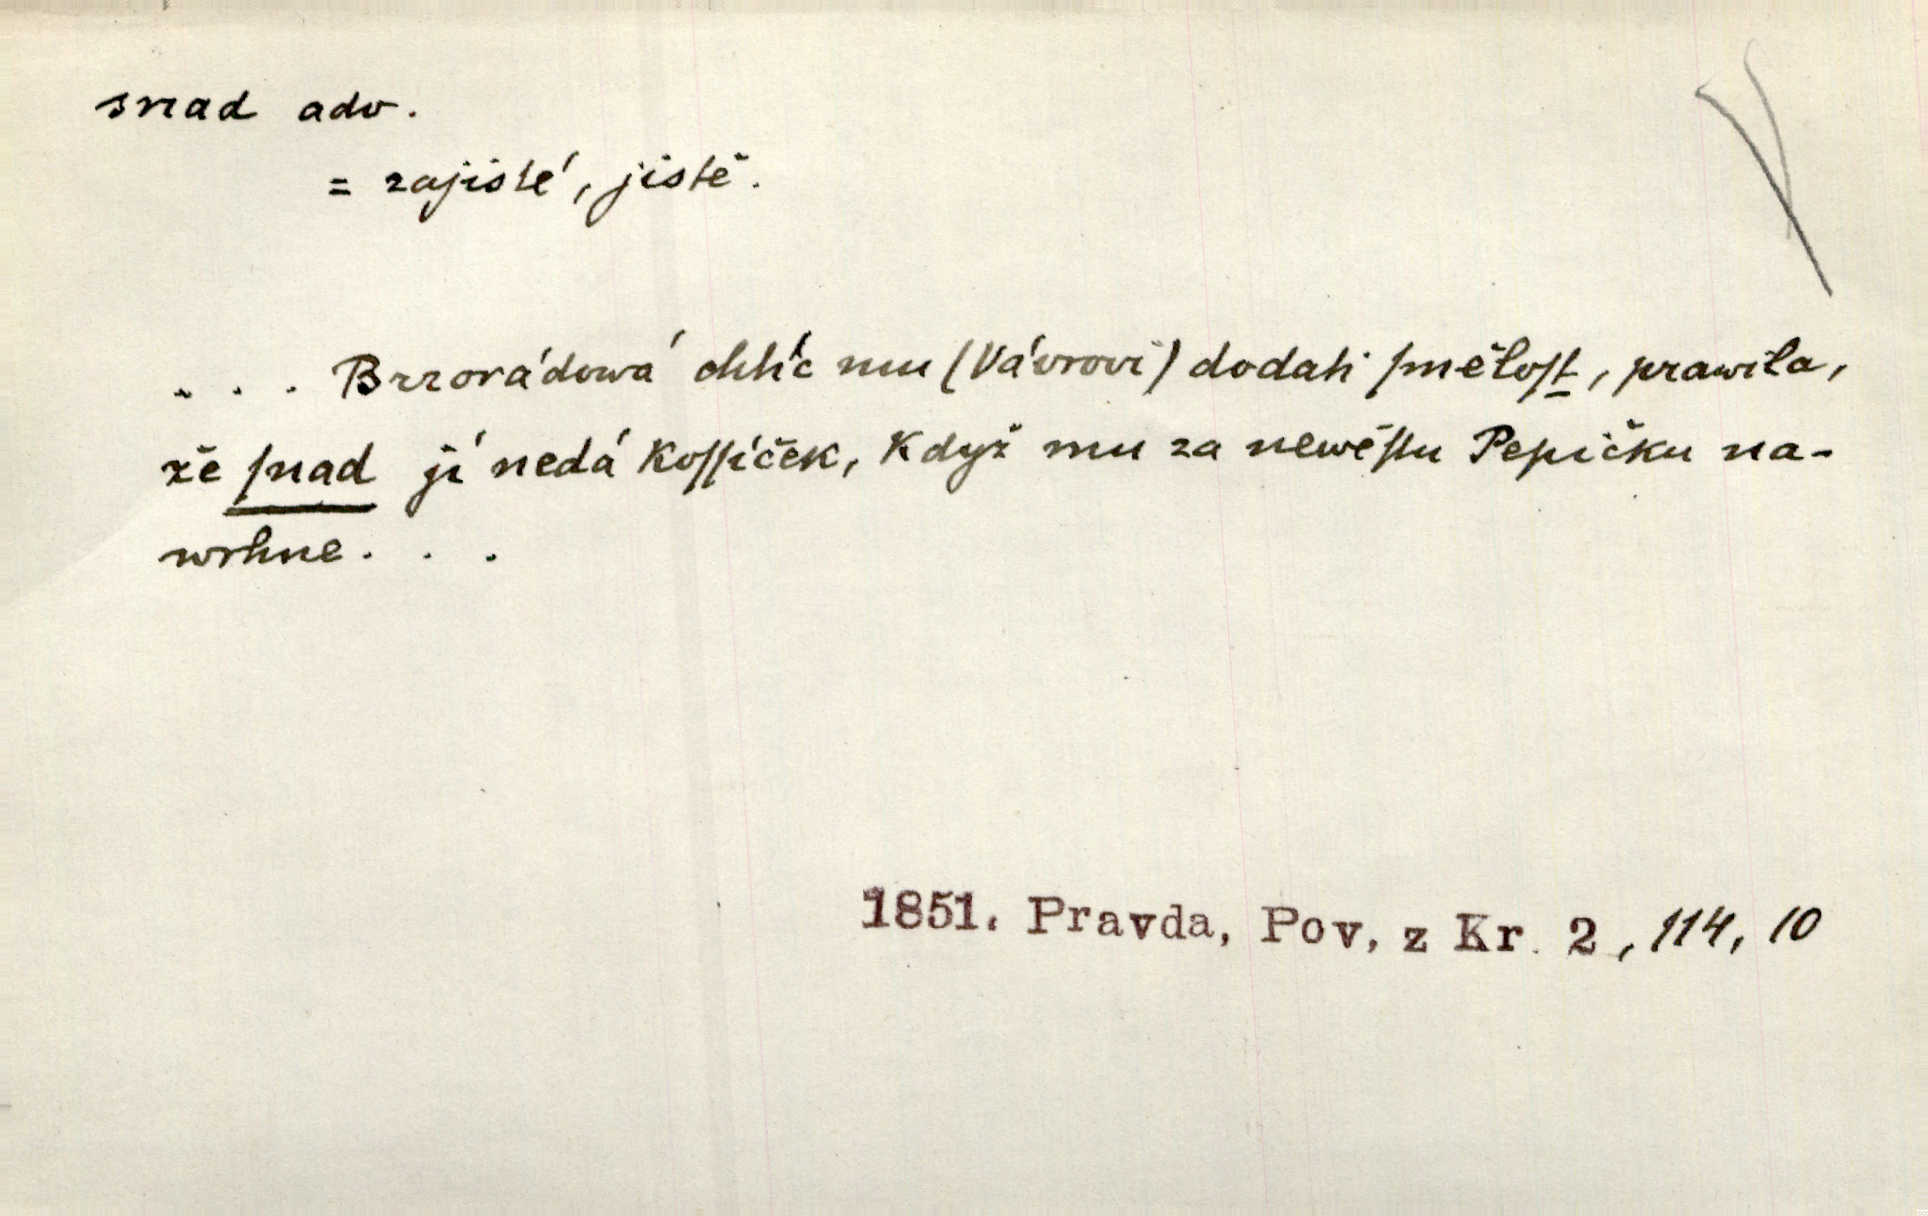 snad adv.
= zajisté, jistě.
. . . Brzorádowá chtíc mu (Vávrovi) dodati ſměloſt, prawila,
že ſnad jí nedá koſſíček, když mu za newěſtu Pepičku na-
wrhne. . .
1851. Pravda, Pov. z Kr. 2, 114, 10